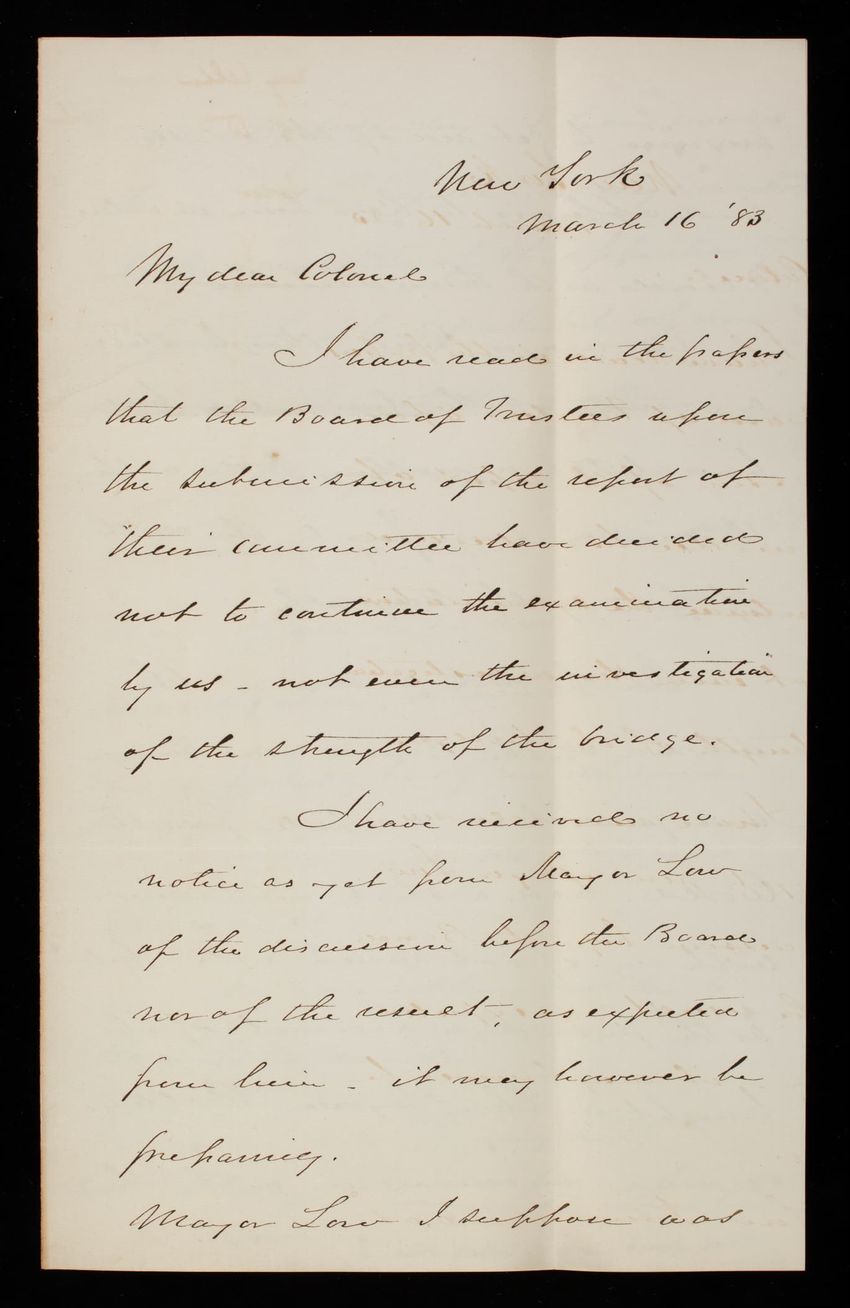 New York
March 16 '83
My dear Colonel
I have read in the papers
that the Board of Trustees upon
the submission of the report of
their committee have decided
not to continue the examination
by us - not even the investigation
of the strength of the bridge.
I have received no
notice as yet from Mayor Low
of the discussion before the Board
nor of the result, as expected
from him - it may however be
preparing.
Mayor Low I suppose was